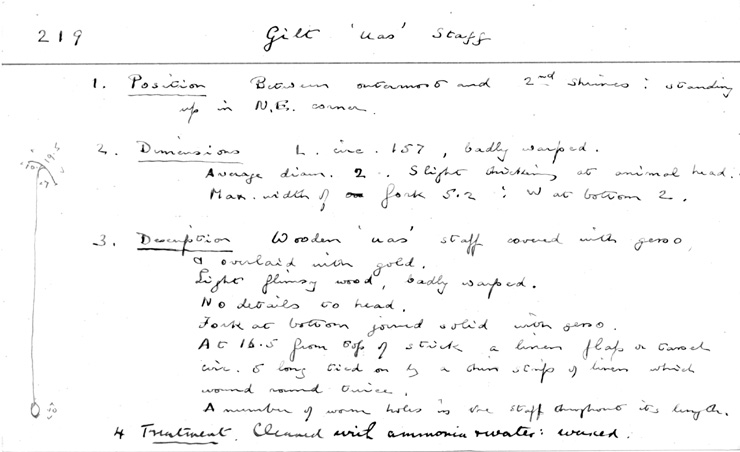 219 Gilt 'uas' staff
1. Position Between outermost and 2nd shrines: standing
up in N.E. corner.
2. Dimensions L. circ. 157, badly warped.
Average diam. 2. Slight thickening at animal head.
Max. width of fork 5.2 : W at bottom 2.
3. Description Wooden 'uas' staff covered with gesso,
& overlaid with gold.
Light flimsy wood, badly warped.
No details to head.
Fork at bottom joined solid with gesso.
At 16.5 from top of stick a linen flap or tassel
circ. 5 long tied on by a thin strip of linen which
wound round twice.
A number of worm holes in the staff throughout its length.
4 Treatment. Cleaned with ammonia & water: waxed.
19.5